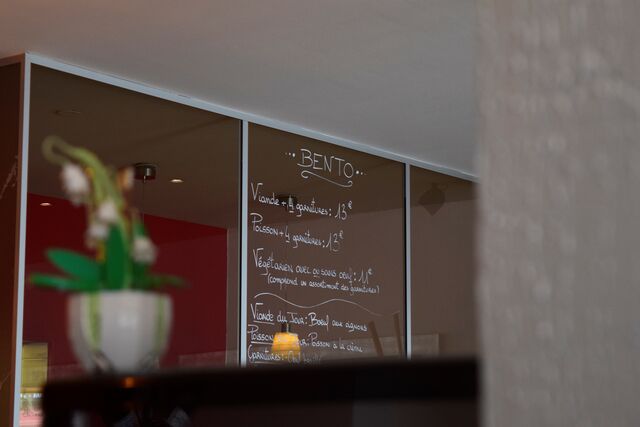 BENTO
Viande + 4 garnitures : 13€
Poisson + 4 garnitures : 13€
Végétarien avec ou sans oeuf : 11€
(comprend un assortiment des garnitures)
Viande du Jour : Boeuf aux oignons
Poisson Jour : Poisson à la crème
Garnitures :